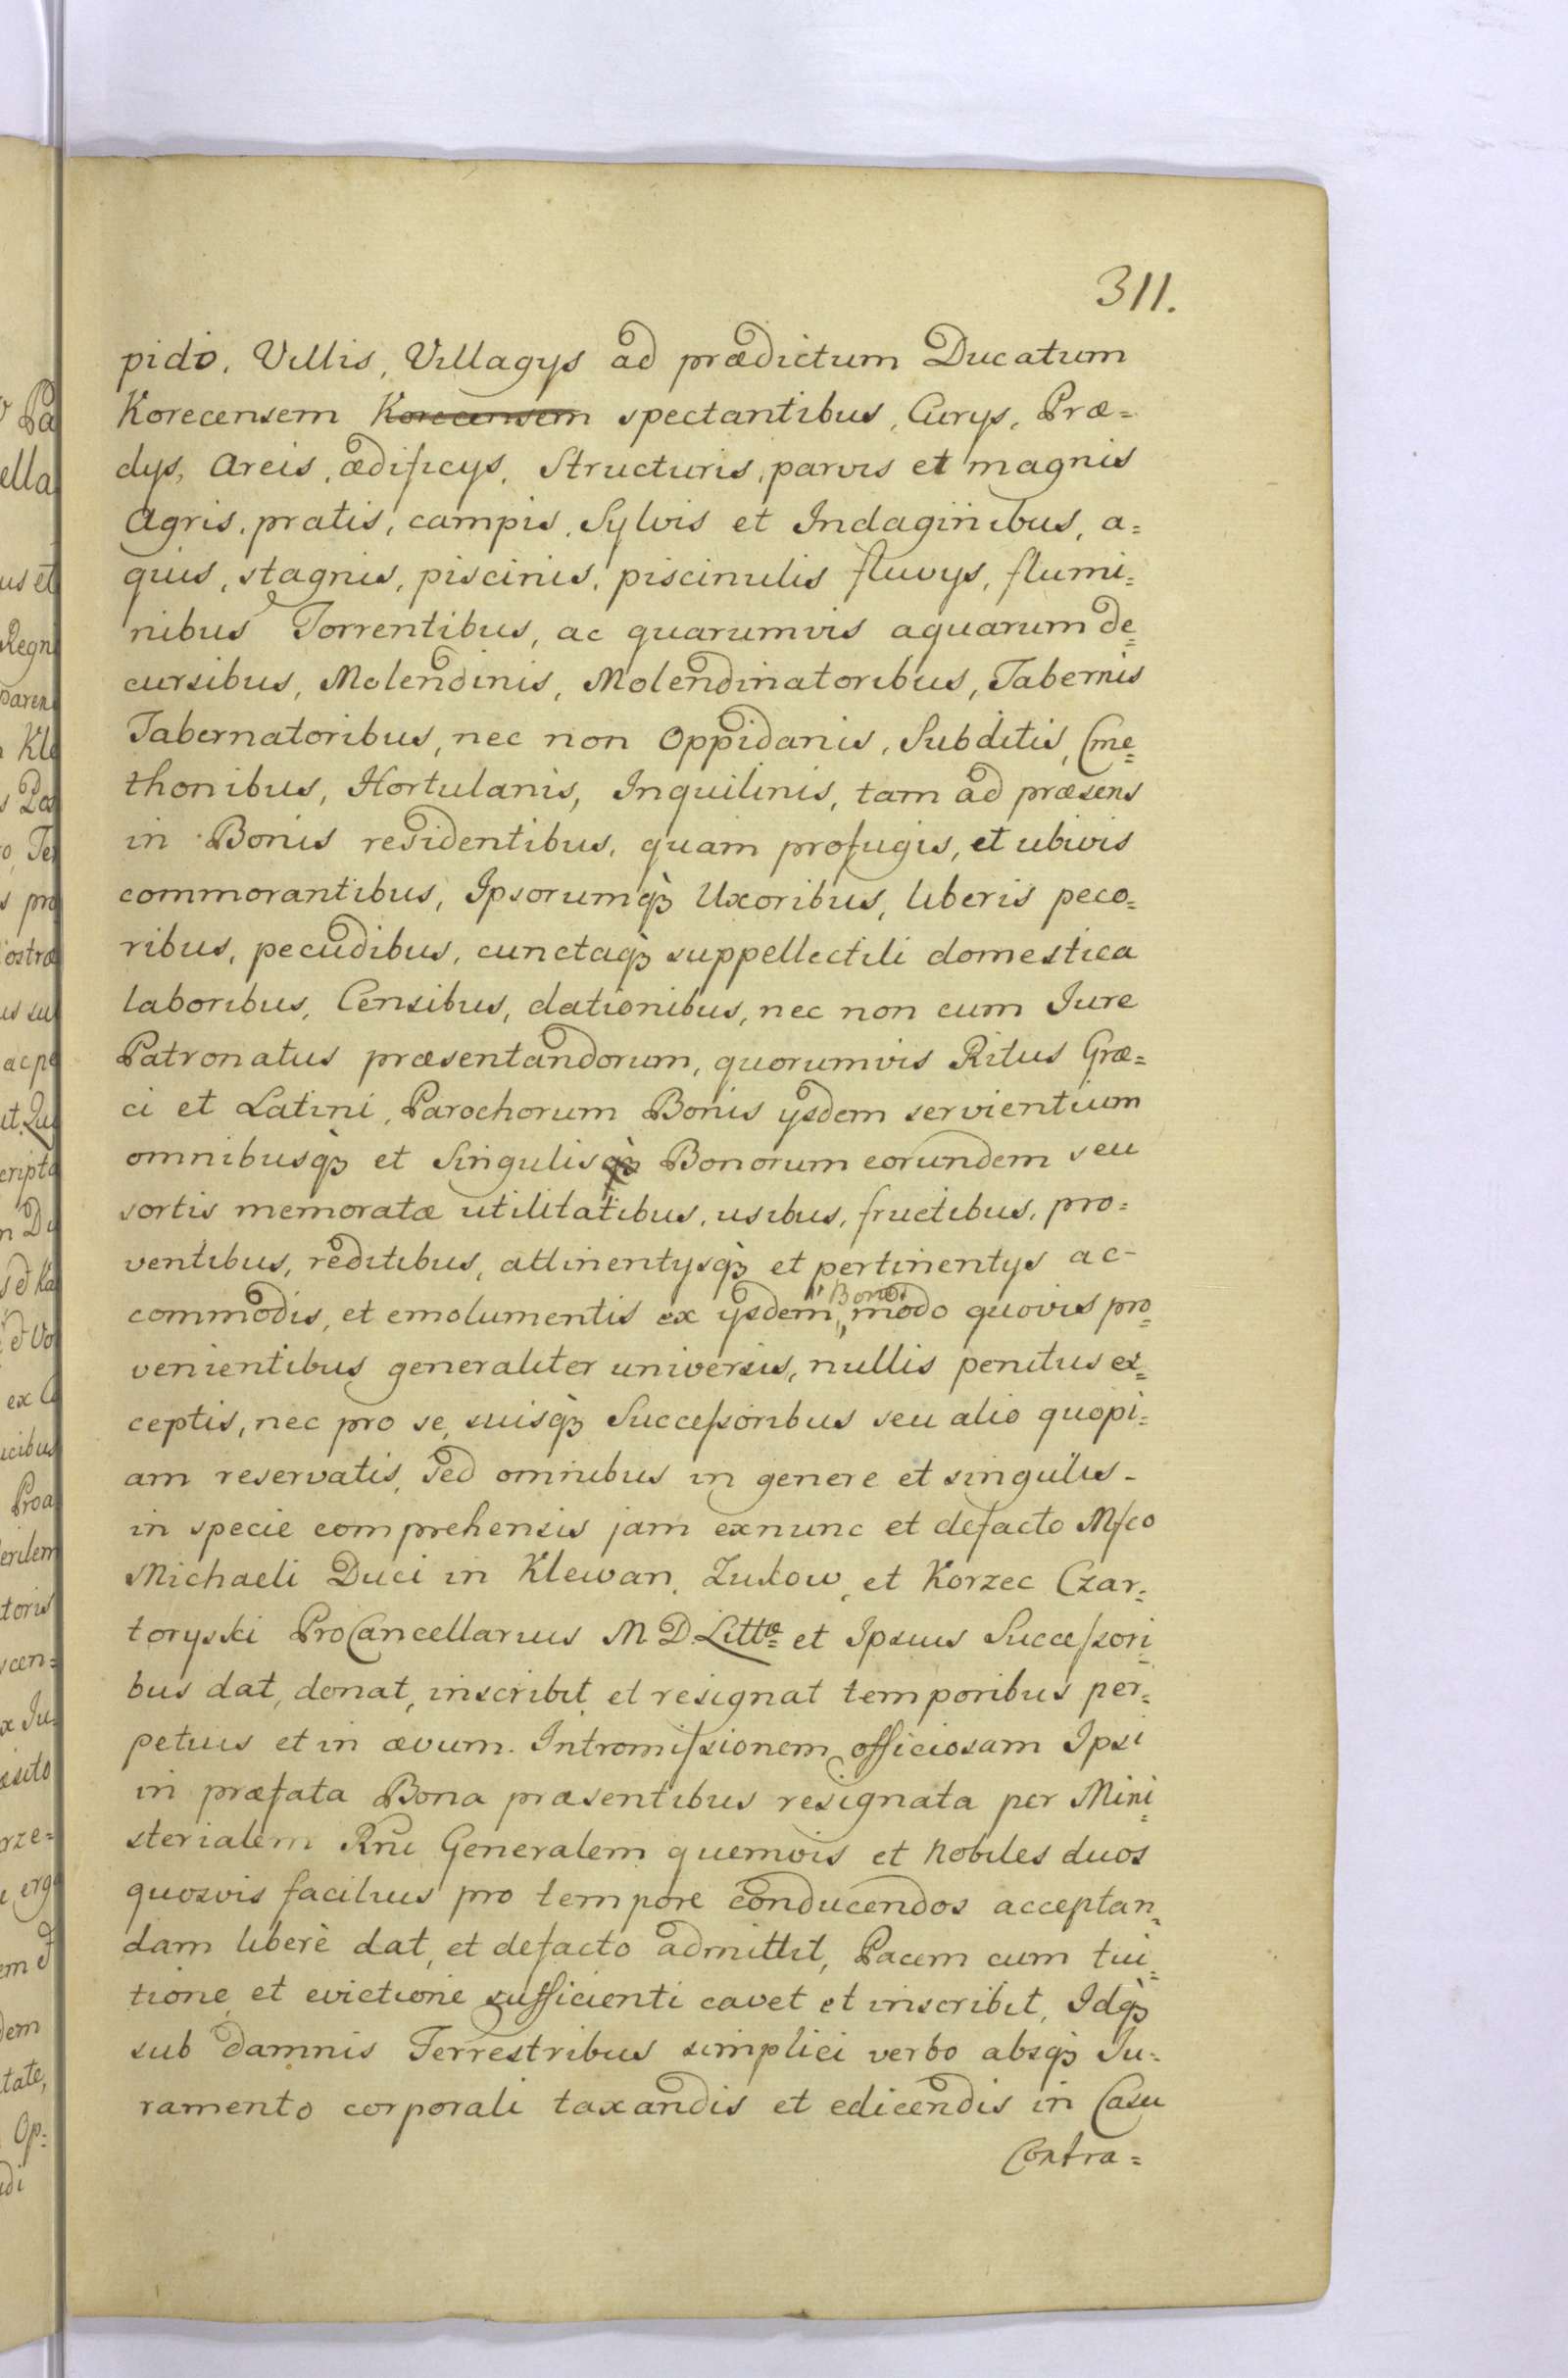 311.
pido, Villis, Villagijs ad prædictum Ducatum
Korecensem Korecensem spectantibus, Curijs, Præ=
dijs, Areis, ædificijs, Structuris, parvis et magnis
Agris, pratis, campis, Sylvis et Indaginibus, a=
quis, stagnis, piscinis, piscinulis fluvijs, flumi=
nibus Torrentibus, ac quarumvis aquarum de=
cursibus, Molendinis, Molendinatoribus, Tabernis
Tabernatoribus, nec non Oppidanis, Subditis, Cme=
thonibus, Hortulanis, Inquilinis, tam ad præsens
in Bonis residentibus, quam profugis, et ubivis
commorantibus, Ipsorumqꝫ Uxoribus, liberis peco=
ribus, pecudibus, cunctaqꝫ suppellectili domestica
laboribus, Censibus, dationibus, nec non cum Jure
Patronatus præsentandorum, quorumvis Ritus Græ=
ci et Latini, Parochorum Bonis ijsdem servientium
omnibusqꝫ et Singulisqꝫ Bonorum eorundem seu
sortis memoratæ utilitatibus, usibus, fructibus, pro=
ventibus, reditibus, attinentijsqꝫ et pertinentijs ac-
commodis, et emolumentis ex ijsdem Bonis modo quovis pro=
venientibus generaliter universis, nullis penitus ex=
ceptis, nec pro se, suisqꝫ Successoribus seu alio quopi=
am reservatis, sed omnibus in genere et singulis-
in specie comprehensis jam exnunc et defacto Mfco
Michaeli Duci in Klewan, Zukow, et Korzec Czar=
toryski ProCancellarius M. D. Littæ et Ipsius Successori=
bus dat, donat, inscribit et resignat temporibus per=
petuis et in ævum. Intromissionem officiosam Ipsi
in præfata Bona præsentibus resignata per Mini=
sterialem Rni Generalem quemvis et Nobiles duos
quosvis facilius pro tempore conducendos acceptan=
dam liberè dat, et defacto admittit, Pacem cum tui=
tione, et evictione sufficienti cavet et inscribit, Idqꝫ
sub damnis Terrestribus simplici verbo absqꝫ Ju=
ramento corporali taxandis et edicendis in Casu
Contra=